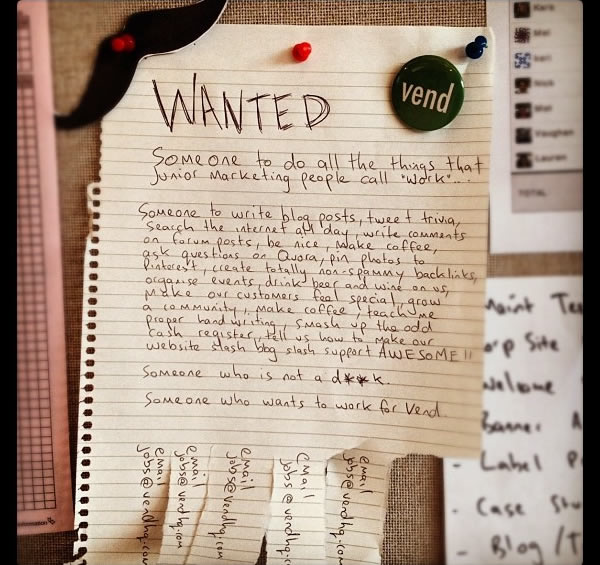 WANTED
vend
Someone to do all the things that
junior marketing people call "work"...
Someone to write blog posts, tweet trivia,
search the internet all day, write comments
on forum posts, be nice, make coffee,
ask questions on Quora, pin photos to
pinterest, create totally non-spammy backlinks,
organise events, drink beer and wine on us,
make our customers feel special, grow
a community, make coffee, teach me
proper hand writing, smash up the odd
cash register, tell us how to make our
website slash blog slash support AWESOME!!
Someone who is not a d**k.
Someone who wants to work for Vend.
email
jobs@vendhq.com
email
jobs@vendhq.com
email
jobs@vendhq.com
email
jobs@vendhq.com
email
jobs@vendhq.com
Mel
Nick
Vaughan
Lauren
TOTAL
Site
Welcome
Banner A
- Label P
- Case Stu
- Blog/T